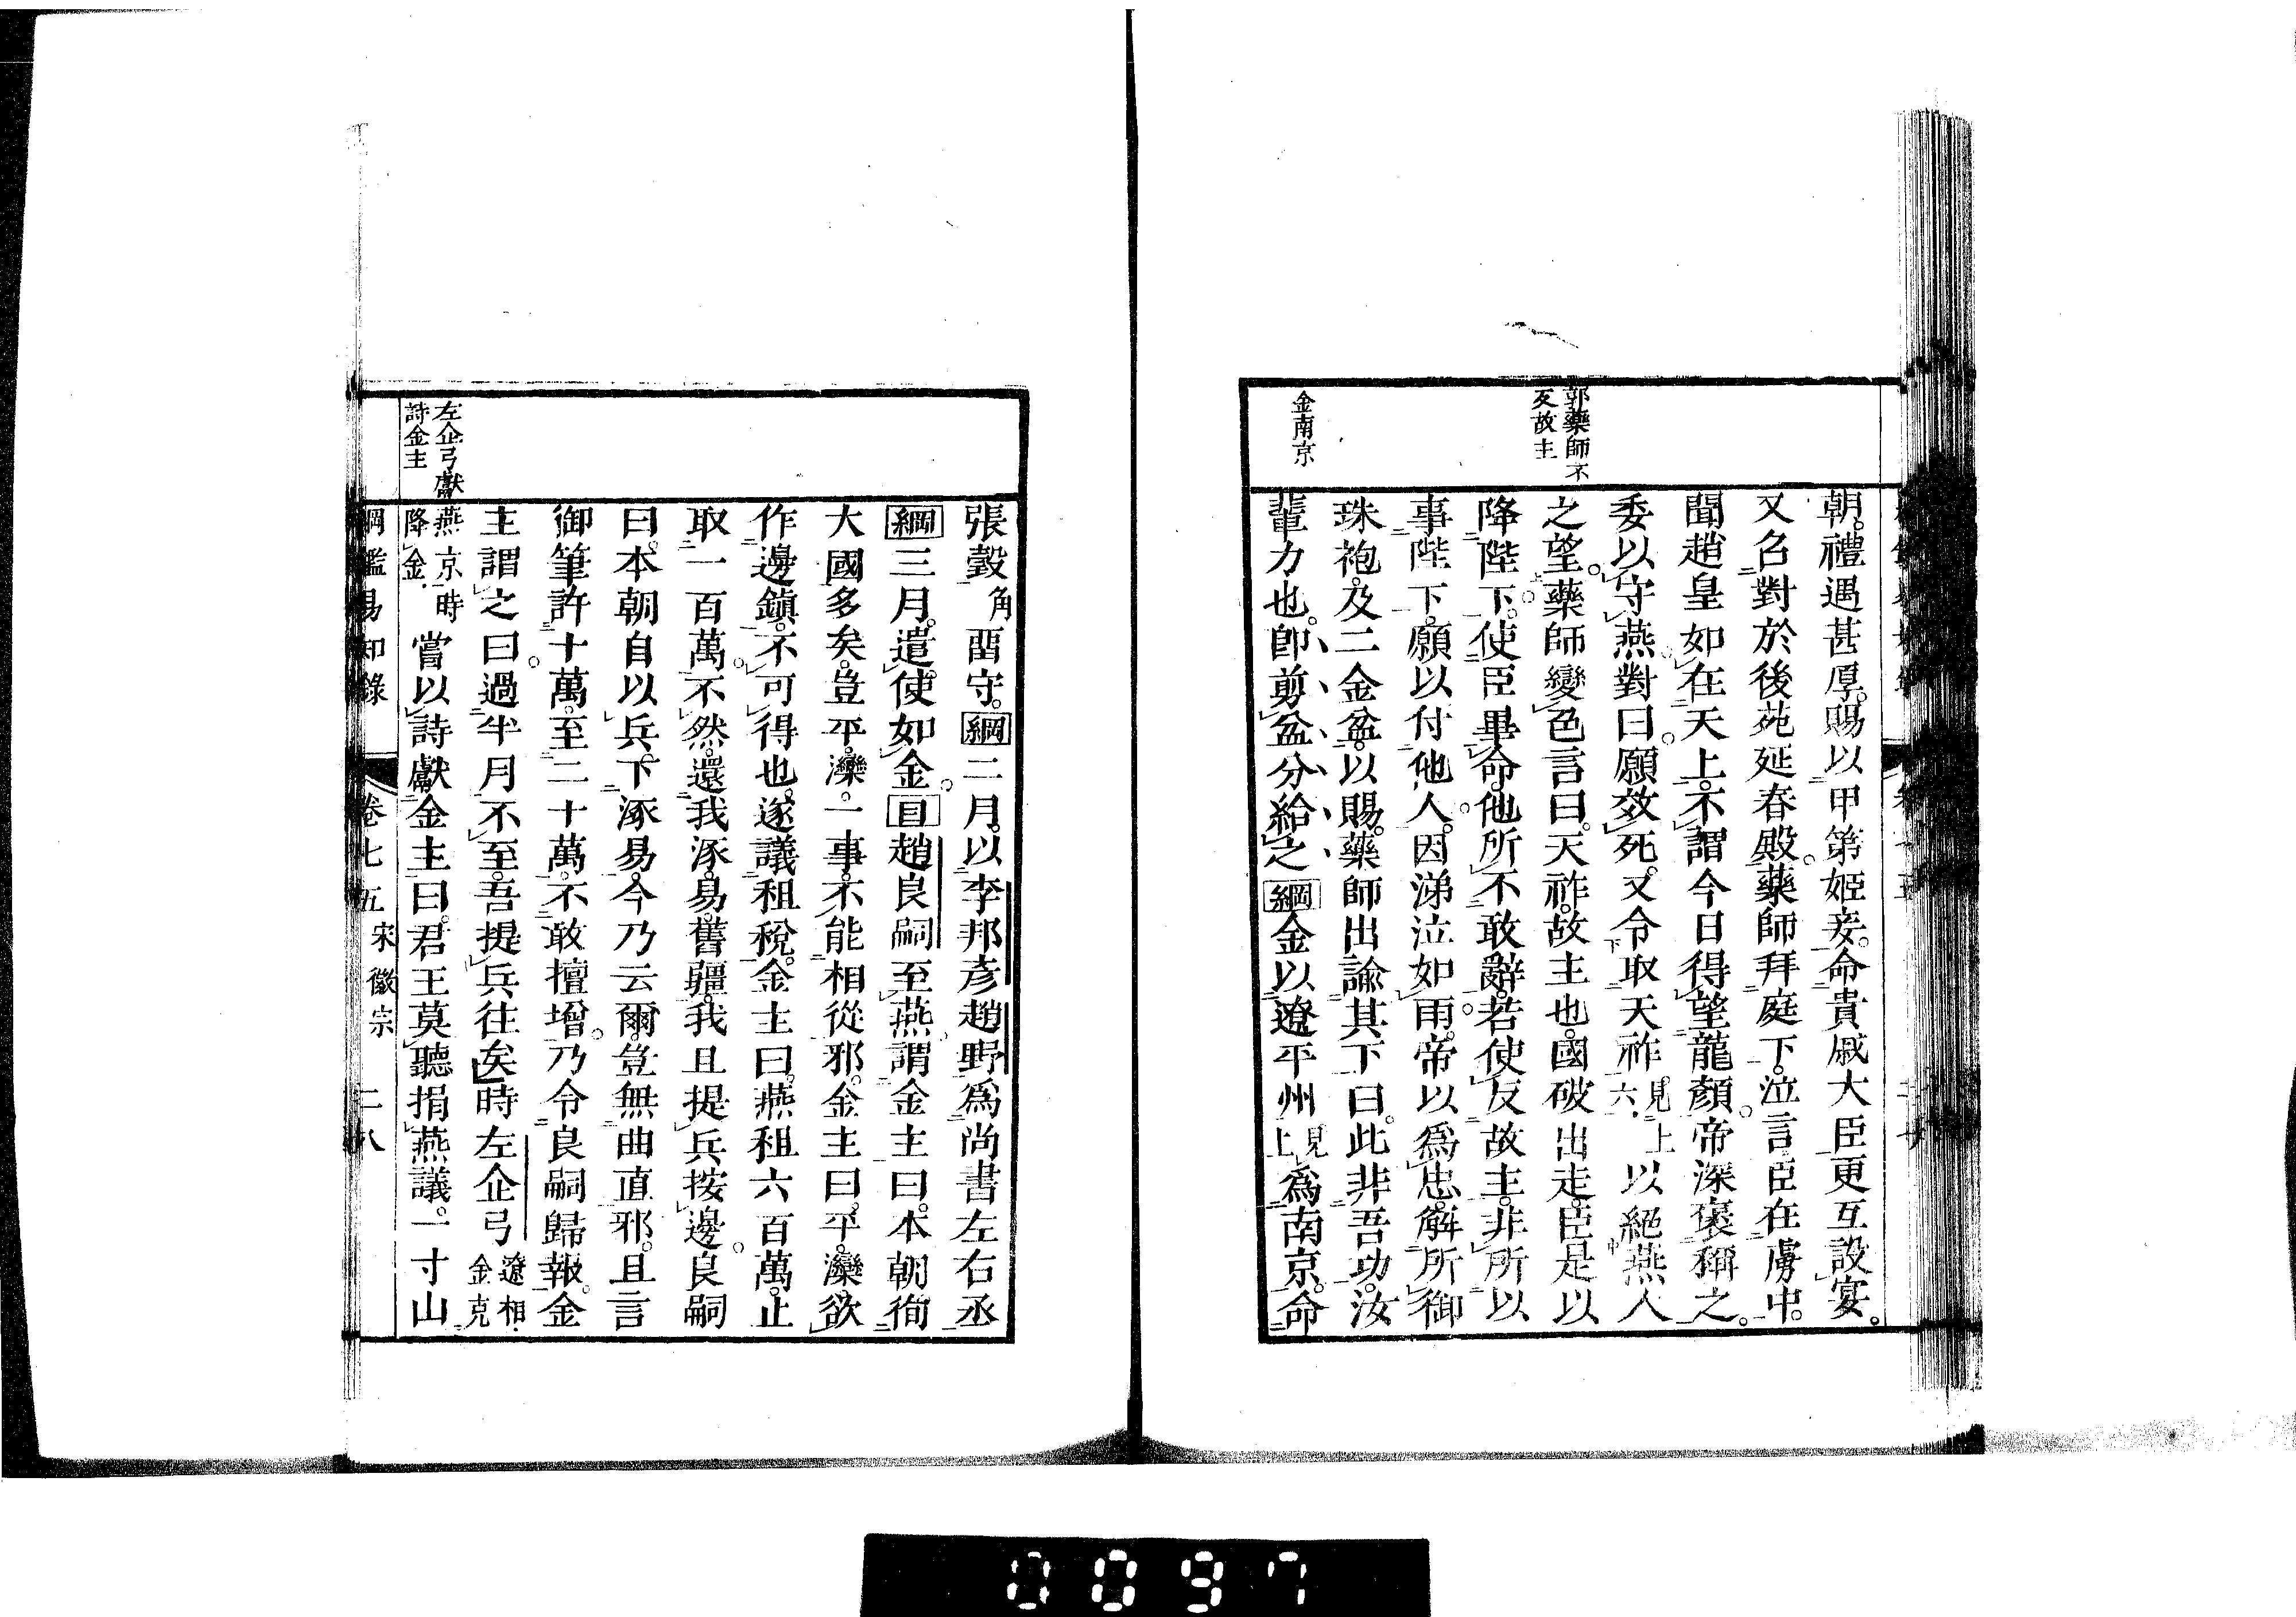 郭藥師不
反故主
金南京
朝禮遇甚厚賜以甲第姬妾命貴戚大臣更互設宴
又召對於後苑延春殿藥師拜庭下泣言臣在虜中
聞趙皇如在天上不謂今日得望龍顏帝深褒稱之
委以守燕對曰願效死又令取天祚見上六以絕燕人
之望藥師變色言曰天祚故主也國破出走臣是以
降陛下使臣畢命他所不敢辭若使反故主非所以
事陛下願以付他人因涕泣如雨帝以爲忠解所御
珠袍及二金盆以賜藥師出諭其下曰此非吾功汝
輩力也卽剪盆分給之綱金以遼平州見上爲南京命
左企弓獻
詩金主
張瑴角畱守綱二月以李邦彥趙野爲尚書左右丞
綱三月遣使如金目趙良嗣至燕謂金主曰本朝徇
大國多矣豈平灤一事不能相從邪金主曰平灤欲
作邊鎮不可得也遂議租稅金主曰燕租六百萬止
取一百萬不然還我涿易舊疆我且提兵按邊良嗣
曰本朝自以兵下涿易今乃云爾豈無曲直邪且言
御筆許十萬至二十萬不敢擅增乃令良嗣歸報金
主謂之曰過半月不至吾提兵往矣時左企弓遼相金克
燕京時降金嘗以詩獻金主曰君王莫聽捐燕議一寸山
綱鑑易知錄 卷七五 宋徽宗 二八
0097